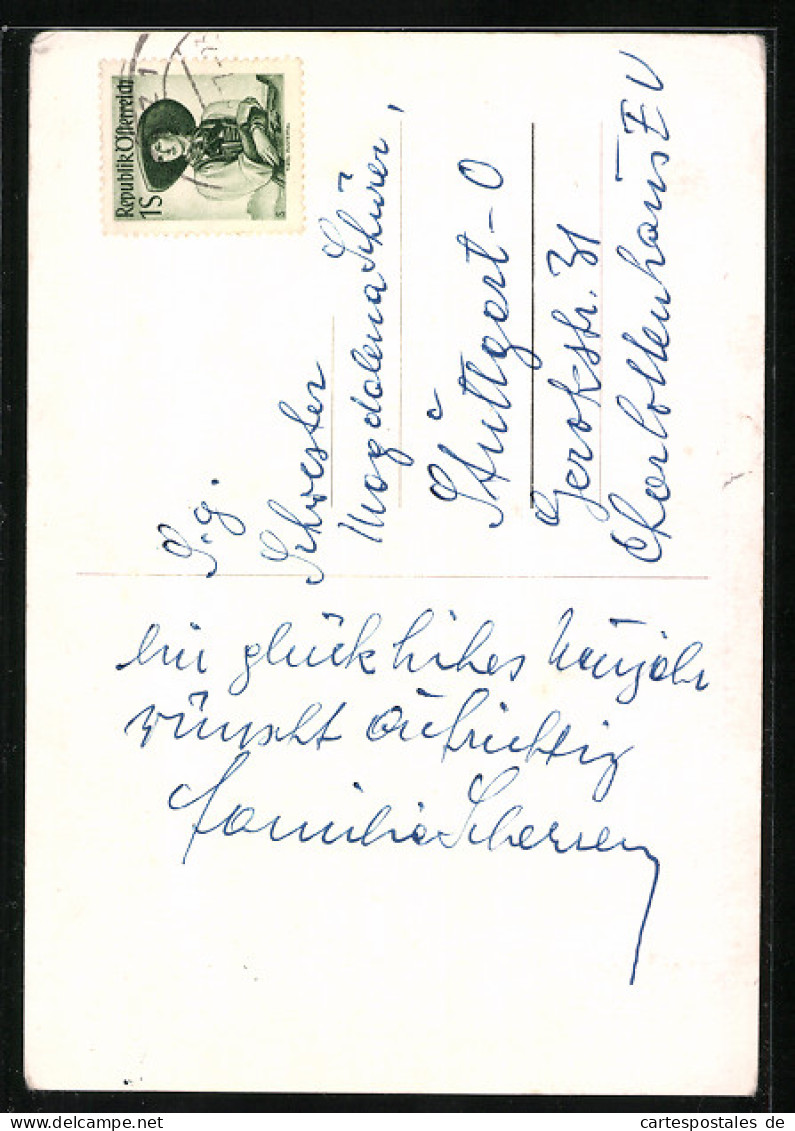 Republik Österreich
1S
S. g.
Schwester
Magdalena Schürer,
Stuttgart-O
Gerokstr. 31
Charlottenhaus EV
Ein glückliches Neujahr
wünscht aufrichtig
Familie
cartespostales de